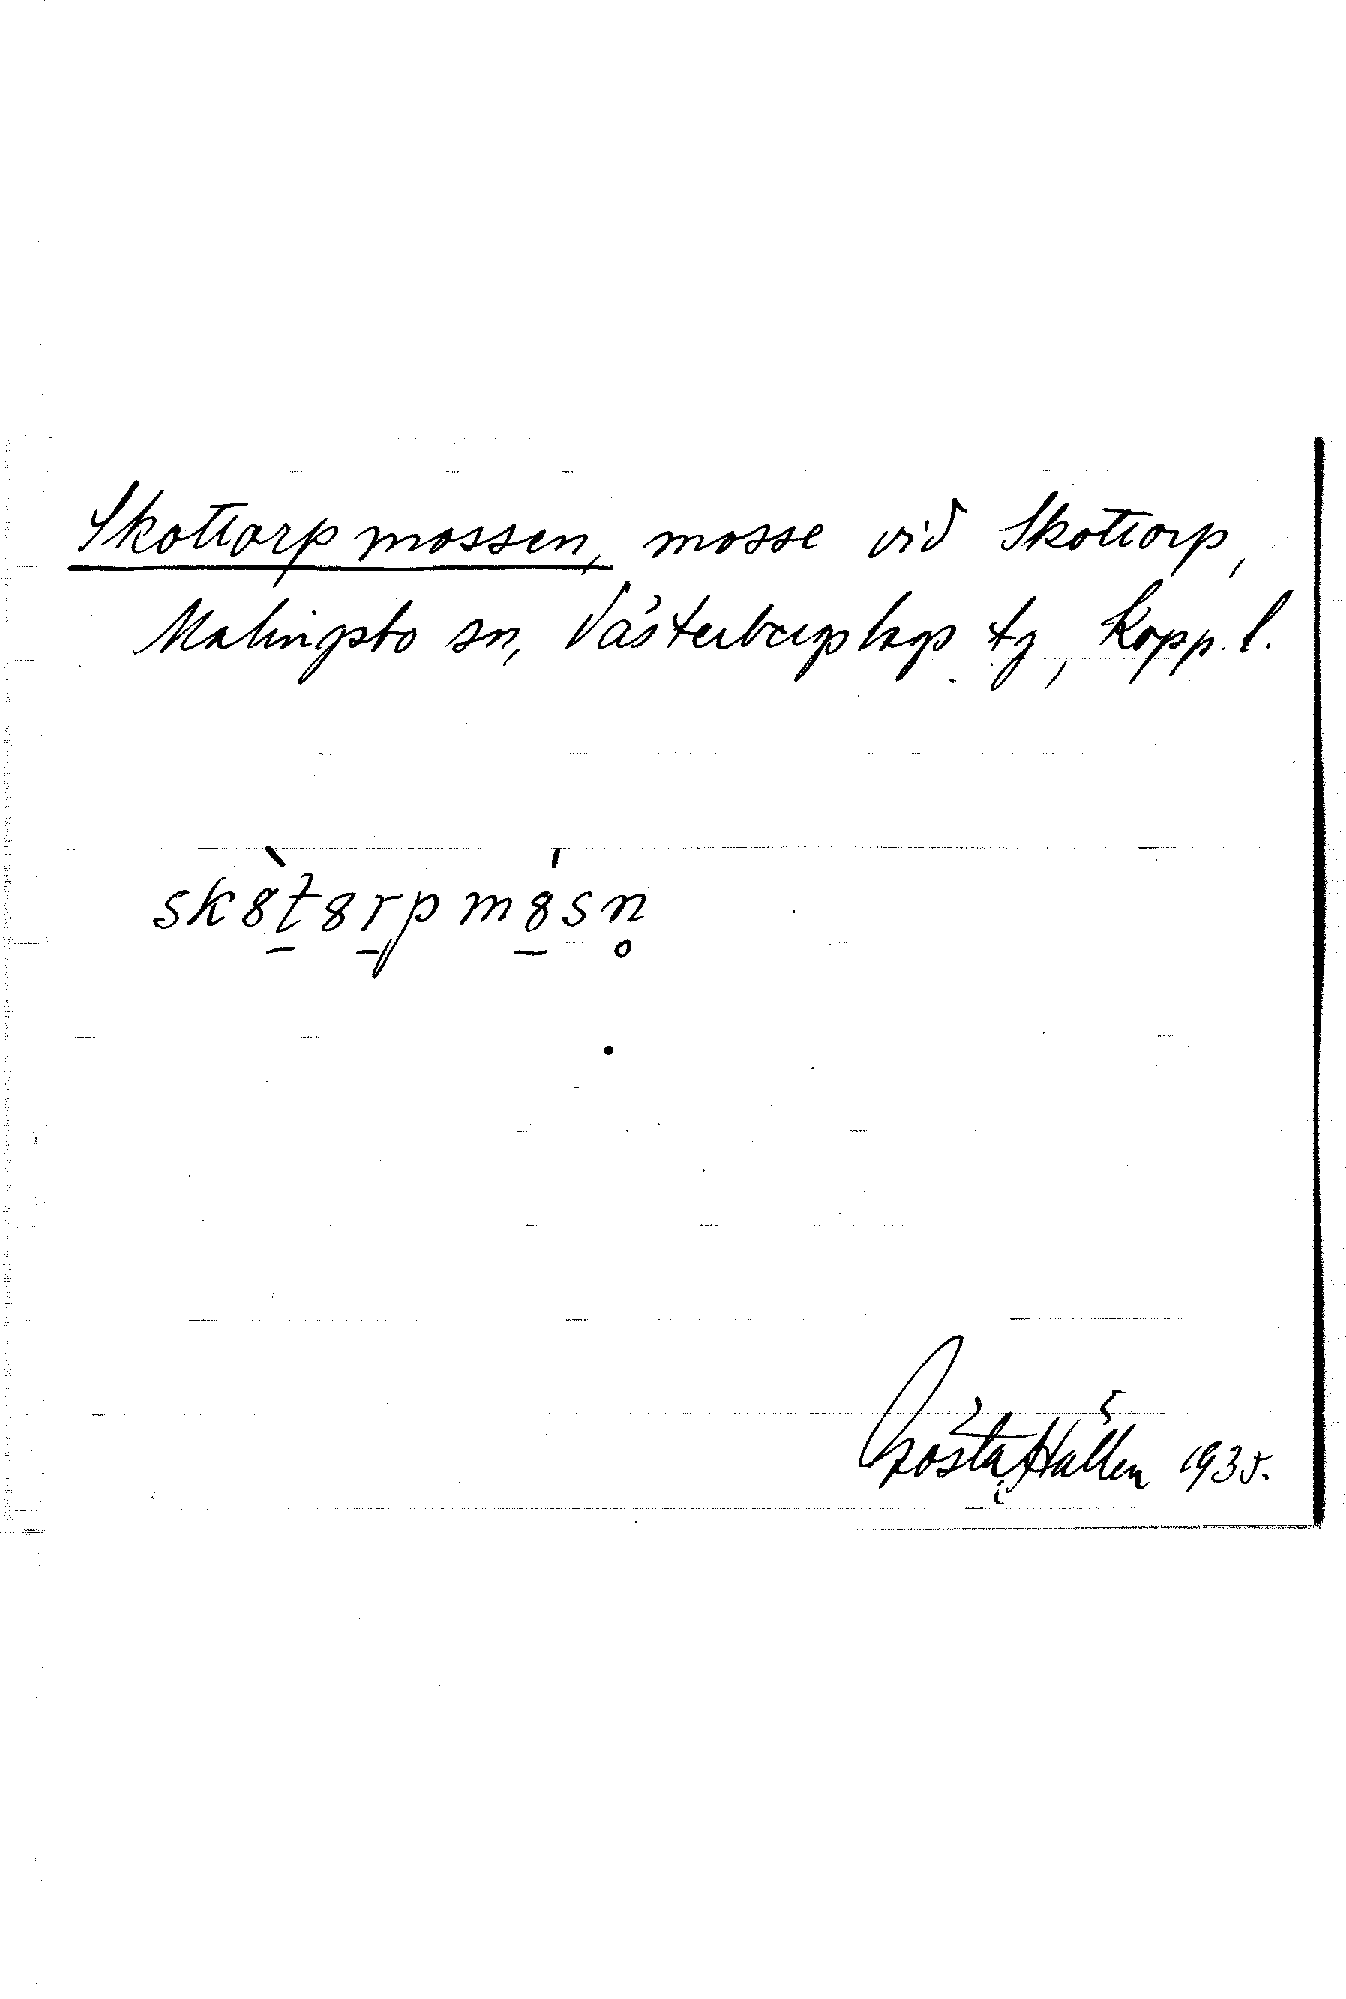 Skottorpmossen, mosse vid Skottorp,
Malingsbo sn, Västerbergslags tg, Kopp. l.
sk8̀t8rpm8́sn̥
Gösta Hallén 1935.